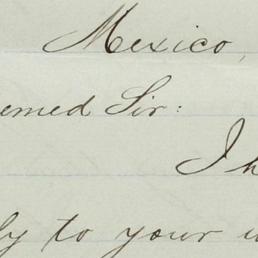 Mexico,
emed Sir:
I h
ly to your